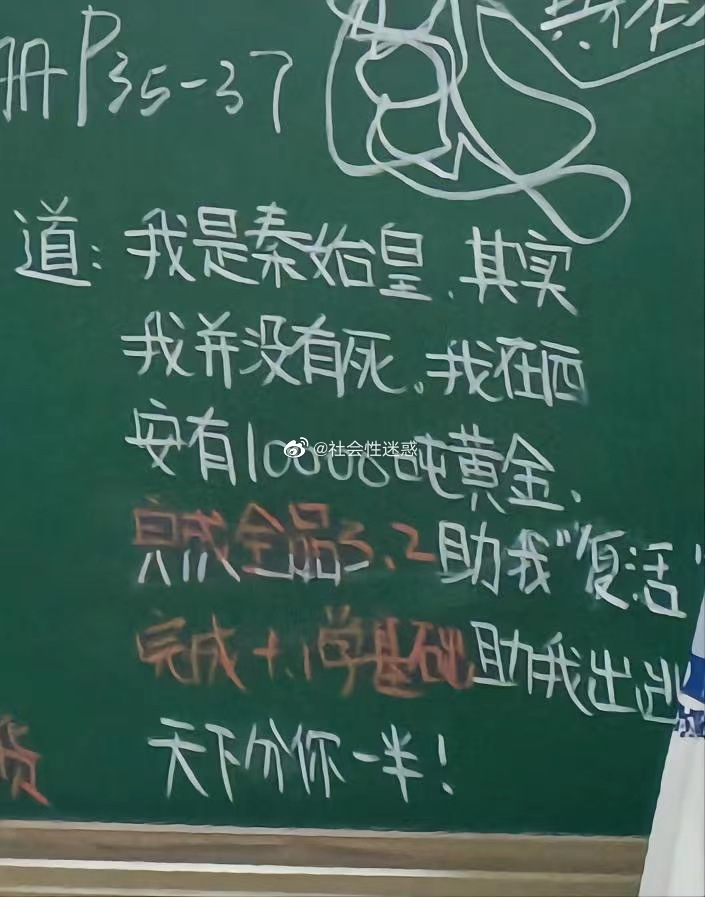 册P35-37
道：我是秦始皇.其实
我并没有死.我在西
安有100000吨黄金、
@社会性迷惑
完成全品3.2助我"复活"
完成 1.1学基础助我出逃
天下分你一半！